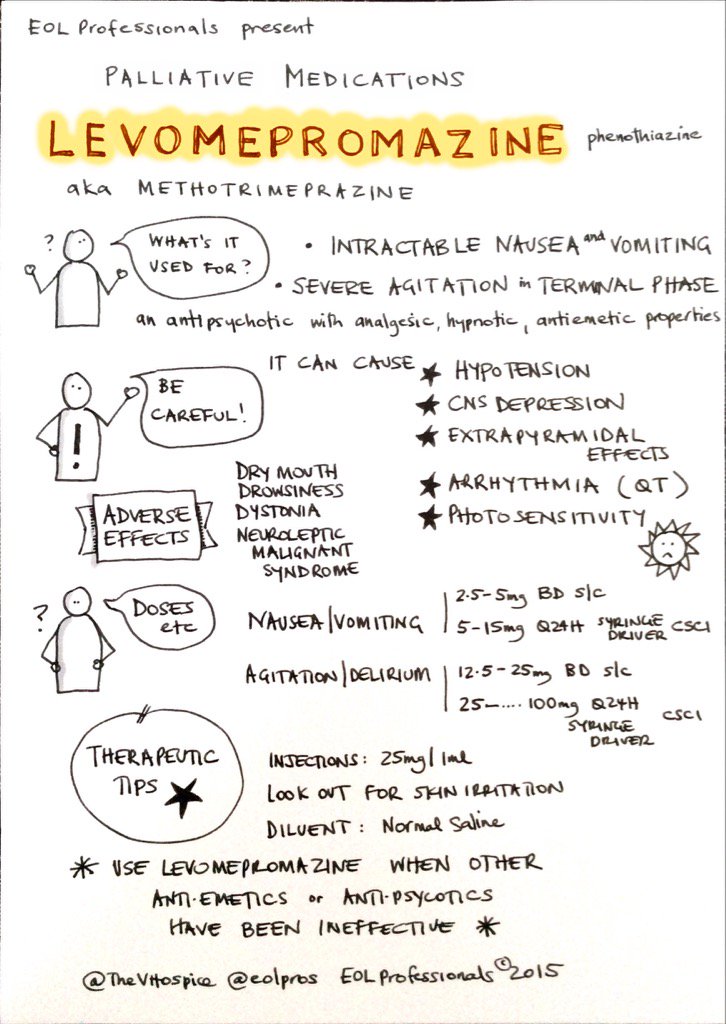 EOL Professionals present
PALLIATIVE MEDICATIONS
LEVOMEPROMAZINE phenothiazine
aka METHOTRIMEPRAZINE
?
WHAT'S IT
USED FOR?
• INTRACTABLE NAUSEA and VOMITING
• SEVERE AGITATION in TERMINAL PHASE
an antipsychotic with analgesic, hypnotic, antiemetic properties
!
BE
CAREFUL!
IT CAN CAUSE
★ HYPOTENSION
★ CNS DEPRESSION
★ EXTRAPYRAMIDAL
EFFECTS
★ ARRHYTHMIA (QT)
★ PHOTOSENSITIVITY
ADVERSE
EFFECTS
DRY MOUTH
DROWSINESS
DYSTONIA
NEUROLEPTIC
MALIGNANT
SYNDROME
?
DOSES
etc
NAUSEA/VOMITING
2.5-5mg BD s/c
5-15mg Q24H SYRINGE DRIVER CSCI
AGITATION/DELIRIUM
12.5-25mg BD s/c
25-....100mg Q24H
SYRINGE DRIVER CSCI
THERAPEUTIC
TIPS ★
INJECTIONS: 25mg/1ml
LOOK OUT FOR SKIN IRRITATION
DILUENT: Normal Saline
* USE LEVOMEPROMAZINE WHEN OTHER
ANTI-EMETICS or ANTI-PSYCOTICS
HAVE BEEN INEFFECTIVE *
@TheVHospice @eolpros EOL Professionals © 2015